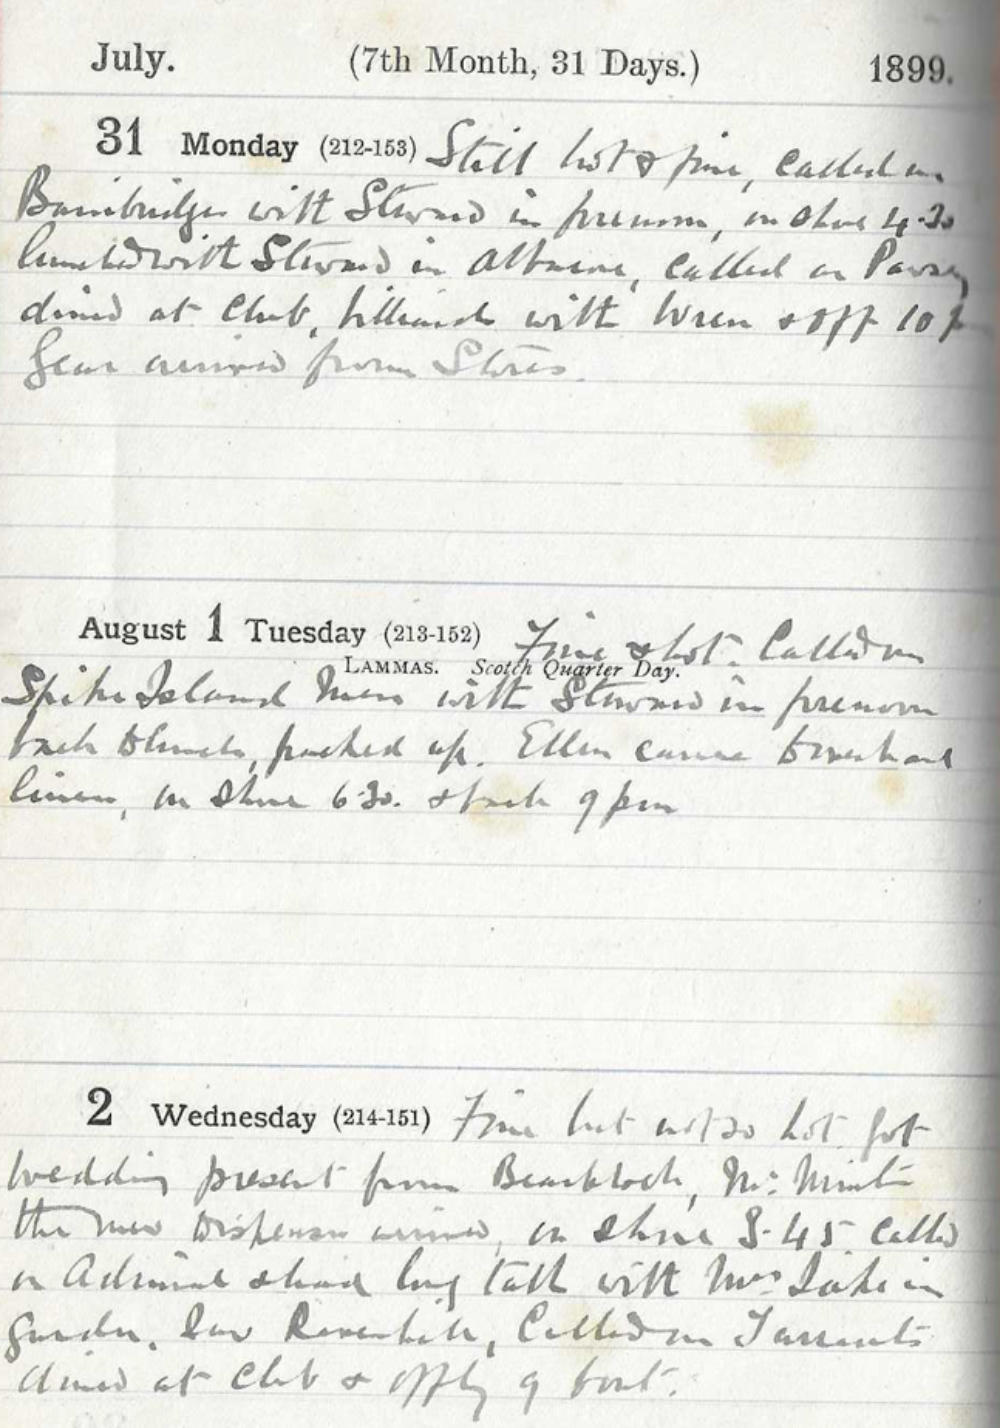 July. (7th Month, 31 Days.) 1899.
31 Monday (212-153) Still hot & fine, called on
Bainbridge with Steward in forenoon, on shore 4.30
lunched with Steward in called on
dined at Club, billiards with Wren & off 10 p
Gear arrived from Stores.
August 1 Tuesday (213-152) Fine & hot. Called on
LAMMAS. Scotch Quarter Day.
Spike Island Mess with Steward in forenoon
back to lunch, packed up. Ellen came to overhaul
linen, on shore 6.30. & back 9 pm
2 Wednesday (214-151) Fine but not so hot. Got
wedding present from Mr.
the new Dispenser arrived, on shore 3.45 called
on Admiral & had long talk with Mrs in
garden. Saw Called on
dined at Club & off by 9 boat.